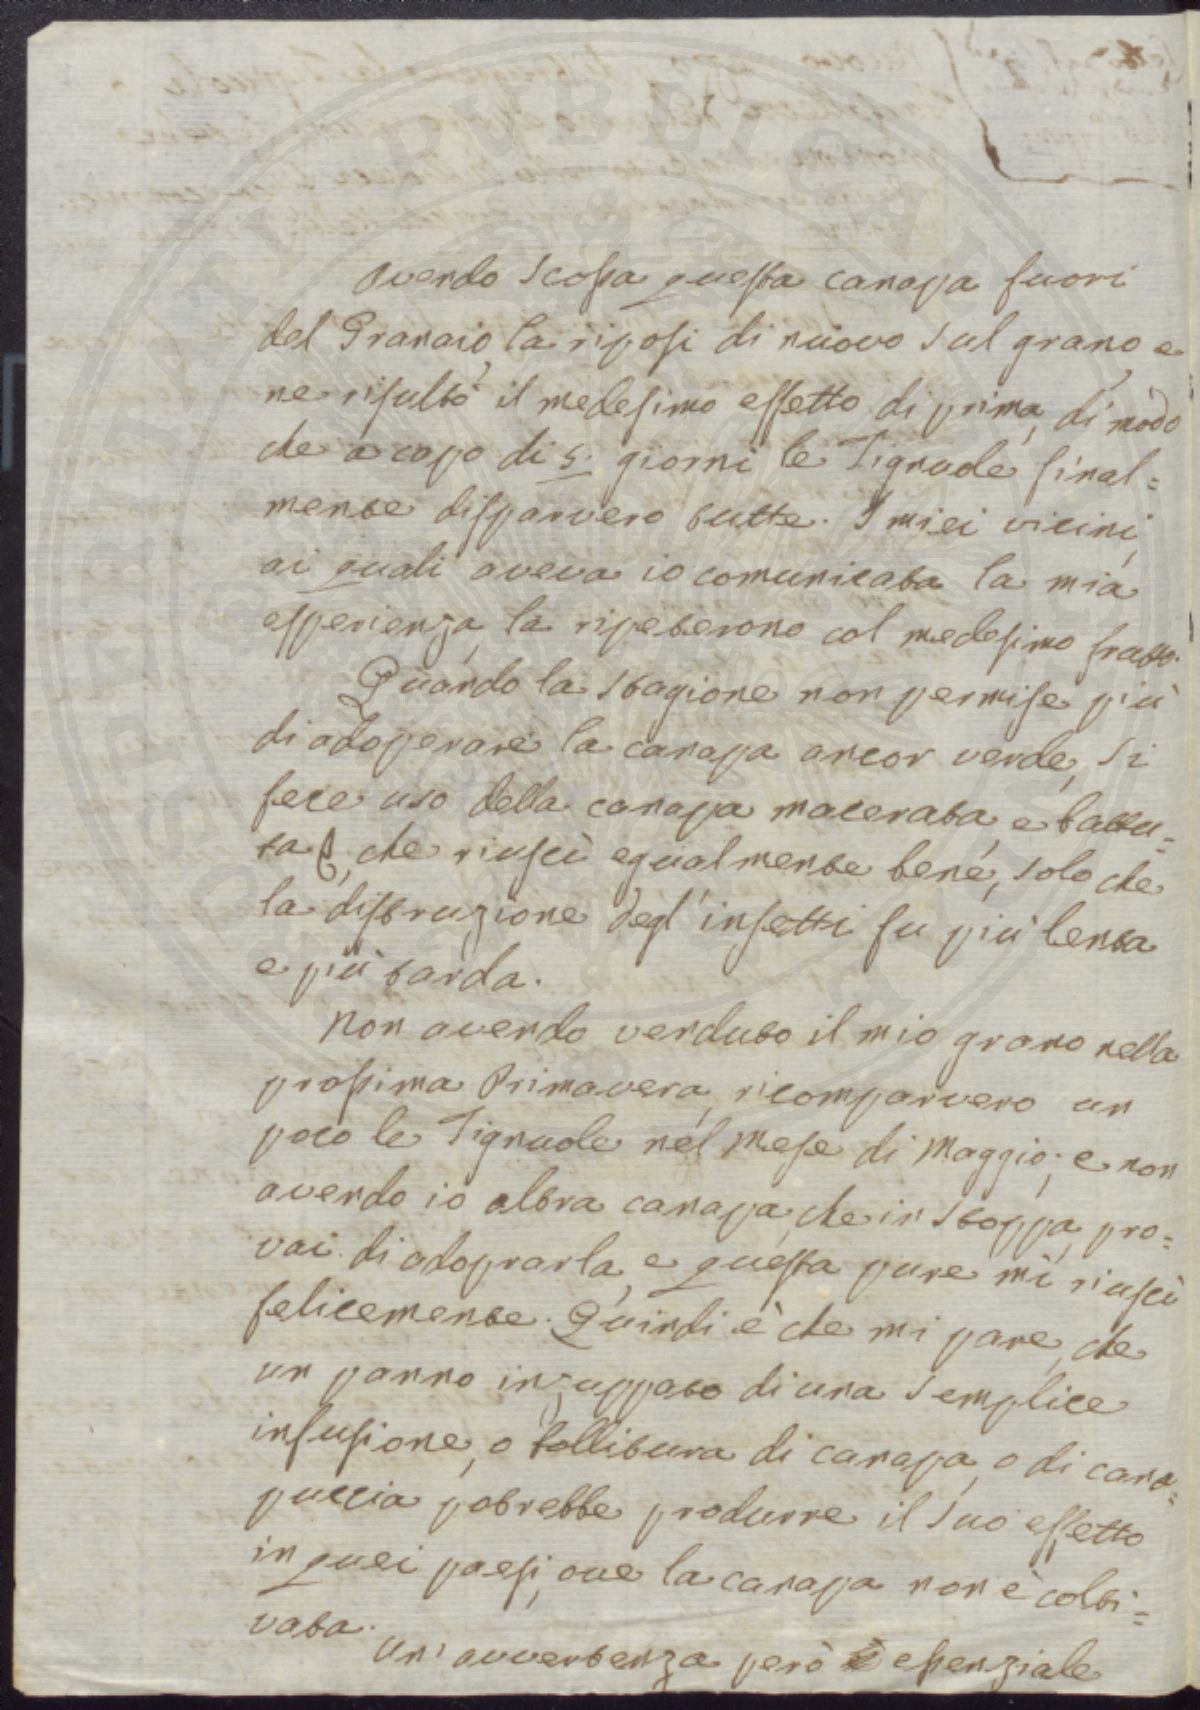 Avendo scossa questa canapa fuori
del Granaio, la riposi di nuovo sul grano, e
ne risultò il medesimo effetto di prima, di modo
che a capo di 5. giorni le Tignuole final=
mente disparvero tutte. I miei vicini,
ai quali aveva io comunicata la mia
esperienza, la ripeterono col medesimo frutto.
Quando la stagione non permise più
di adoperare la canapa ancor verde, si
fece uso della canapa macerata, e battu=
ta, che riuscì egualmente bene, solo che
la distruzione degl'insetti fu più lenta
e più tarda.
Non avendo venduto il mio grano nella
prossima Primavera, ricomparvero un
poco le Tignuole nel Mese di Maggio; e non
avendo io altra canapa, che in stoppa, pro=
vai di adoprarla, e questa pure mi riuscì
felicemente. Quindi è che mi pare, che
un panno inzuppato di una semplice
infusione, o bollitura di canapa, o di cana=
puccia potrebbe produrre il suo effetto
in quei paesi, ove la canapa non è colti=
vata.
Un'avvertenza però è essenziale